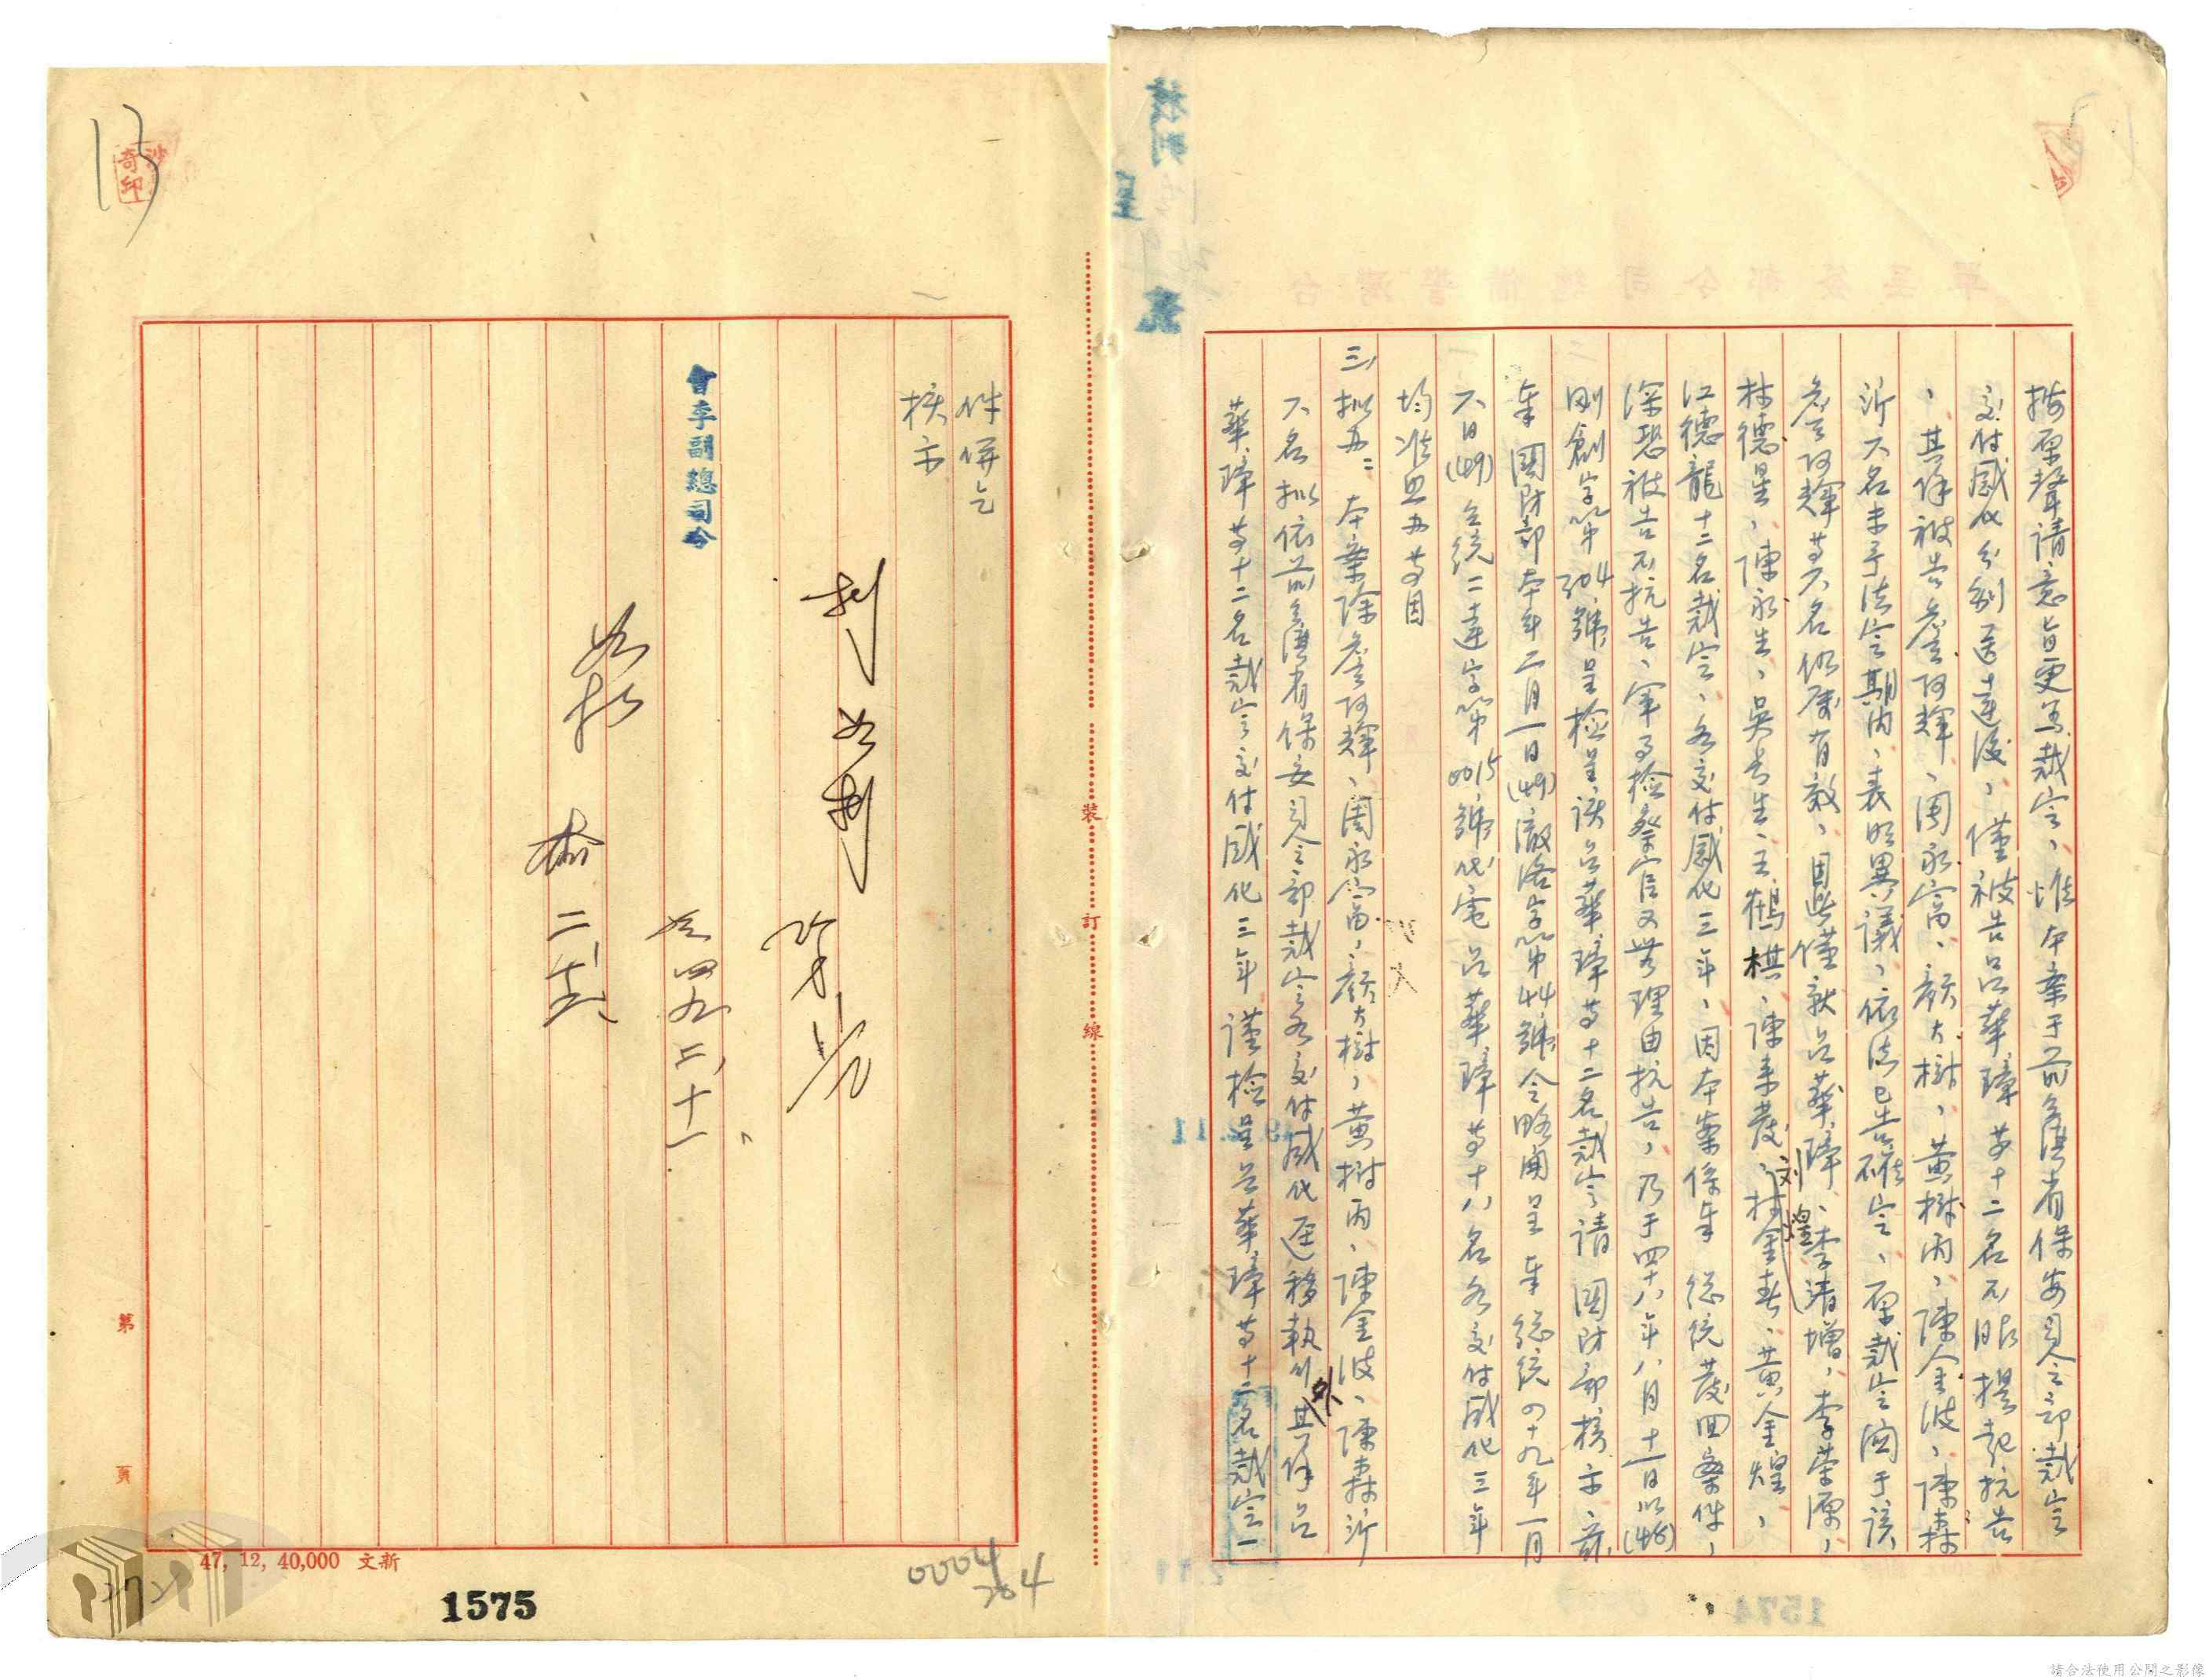 按原聲請意旨更為裁定、惟本案于前台灣省保安司令部裁定
交付感化分別送達後、僅被告呂華璋等十二名不服提起抗告
、其餘被告詹阿輝、周永富、顏大樹、黃樹丙、陳金波、陳森
沂六名未于法定期內、表明異議、依法已告確定、原裁定關于該
詹阿輝等六名仍屬有效、因此僅就呂華璋、李清增、李荣源、
林德星、陳永生、吳 生、王鶴棋、陳來發、林金春、黃金煌、
刘 煌
江德龍十二名裁定、各交付感化三年、因本案係奉 総統發回案件、
深恐被告不抗告、軍事檢察官又無理由抗告、乃于四十八年八月十一日以(48)
剛創字第304號呈檢呈該呂華璋等十二名裁定請 國防部核示、茲
奉 國防部本年二月一日(49)澈洛字第44號令略開呈奉 総統四十九年一月
六日(49)台統二達字第0015號代電呂華璋等十八名各交付感化三年
均准照办等因
三、拟办：本案除詹阿輝、周永富、顏大樹、黃樹丙、陳金波、陳森沂
六名拟依前台灣省保安司令部裁定各交付感化逕移執行外其餘呂
華璋等十二名裁定交付感化三年謹檢呈呂華璋等十二名裁定一
件併乞
核示
判 如判
會李副總司令
四九、二、十一
如拟
二、
裝 訂 線
第 頁
47, 12, 40,000 文新
0004
204
1575
1574
13
請合法使用公開之影像